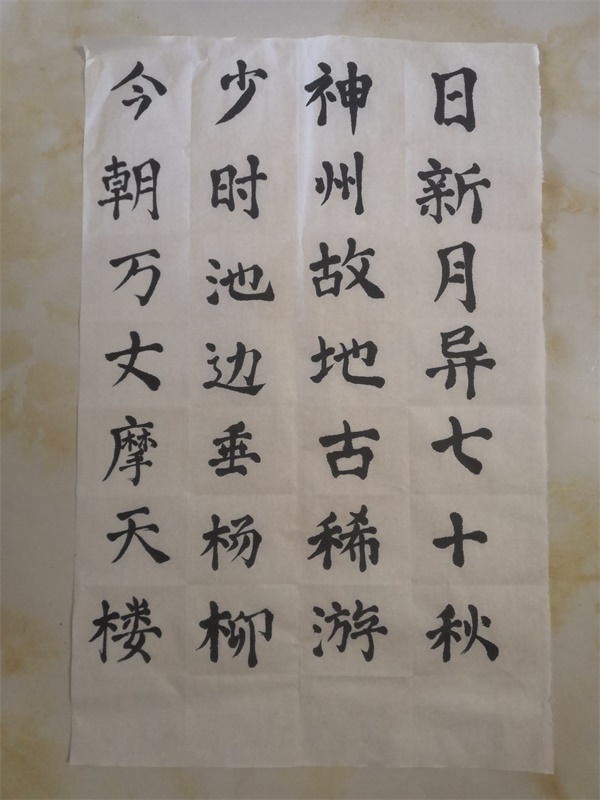 日新月异七十秋
神州故地古稀游
少时池边垂杨柳
今朝万丈摩天楼